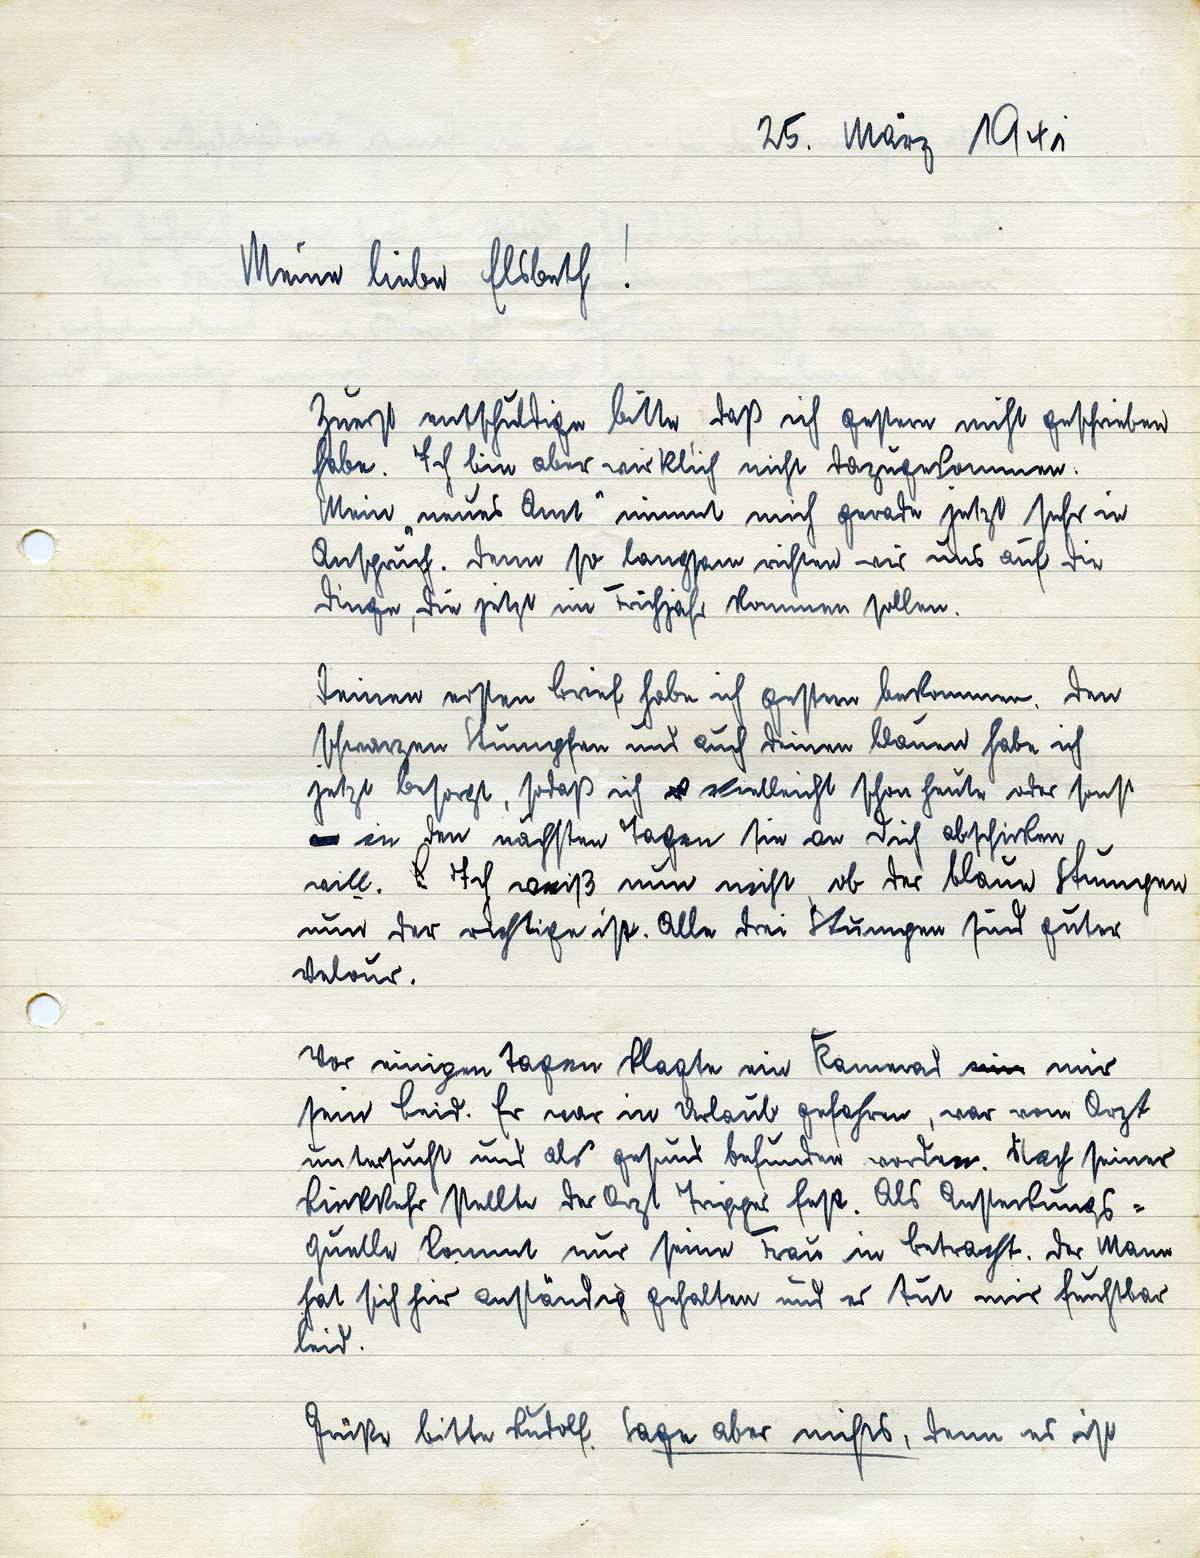 25. März 1941
Meine liebe Elsbeth!
Zuerst entschuldige bitte daß ich gestern nicht geschrieben
habe. Ich bin aber wirklich nicht dazugekommen.
Mein „neues Amt“ nimmt mich gerade jetzt sehr in
Anspruch. Denn so langsam richten wir uns auf die
Dinge, die jetzt im Frühjahr kommen sollen.
Deinen ersten Brief habe ich gestern bekommen. Den
schwarzen Stumpfen und auch deinen blauen habe ich
jetzt besorgt, sodaß ich vielleicht schon heute oder sonst
in den nächsten Tagen sie an Dich abschicken
will. Ich weiß nun nicht, ob der blaue Stumpen
nun der richtige ist. Alle drei Stumpen sind guter
Velour.
Vor einigen Tagen klagte ein Kamerad mir
sein Leid. Er war in Urlaub gefahren, war vom Arzt
untersucht und als gesund befunden worden. Nach seiner
Rückkehr stellte der Arzt Tripper fest. Als Ansteckungs=
Quelle kommt nur seine Frau in betracht. Der Mann
hat sich hier anständig gehalten und er tut mir furchtbar
leid.
Grüße bitte Rudolf. Sage aber nichts, denn es ist